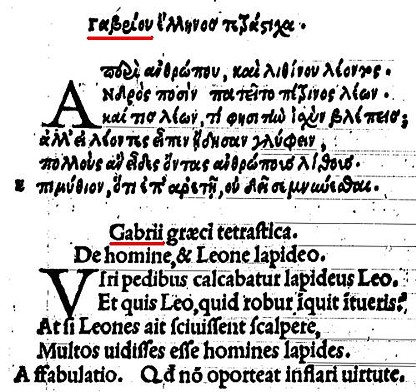 Γαβρίου ἕλληνος τετράστιχα.
περὶ ἀνθρώπου, καὶ λιθίνου λέοντος.
Ἀνδρὸς ποσὶν πατεῖτο πέτρινος λέων.
καί τις λέων, τί φησι τὴν ἰσχὺν βλέπεις;
ἀλλ' εἰ λέοντες εἶπεν ᾔδησαν γλύφειν,
πολλοὺς ἂν εἶδες ὄντας ἀνθρώπους λίθους.
ἐπιμύθιον, ὅτι ἐπ' ἀρετῇ, οὐ δεῖ σεμνύεσθαι.
Gabrii græci tetrastica.
De homine,& Leone lapideo.
Viri pedibus calcabatur lapideus Leo.
Et quis Leo,quid robur īquit ītueris?
At si Leones ait sciuissent scalpere,
Multos uidisses esse homines lapides.
Affabulatio. Qđ nō oporteat inflari uirtute.